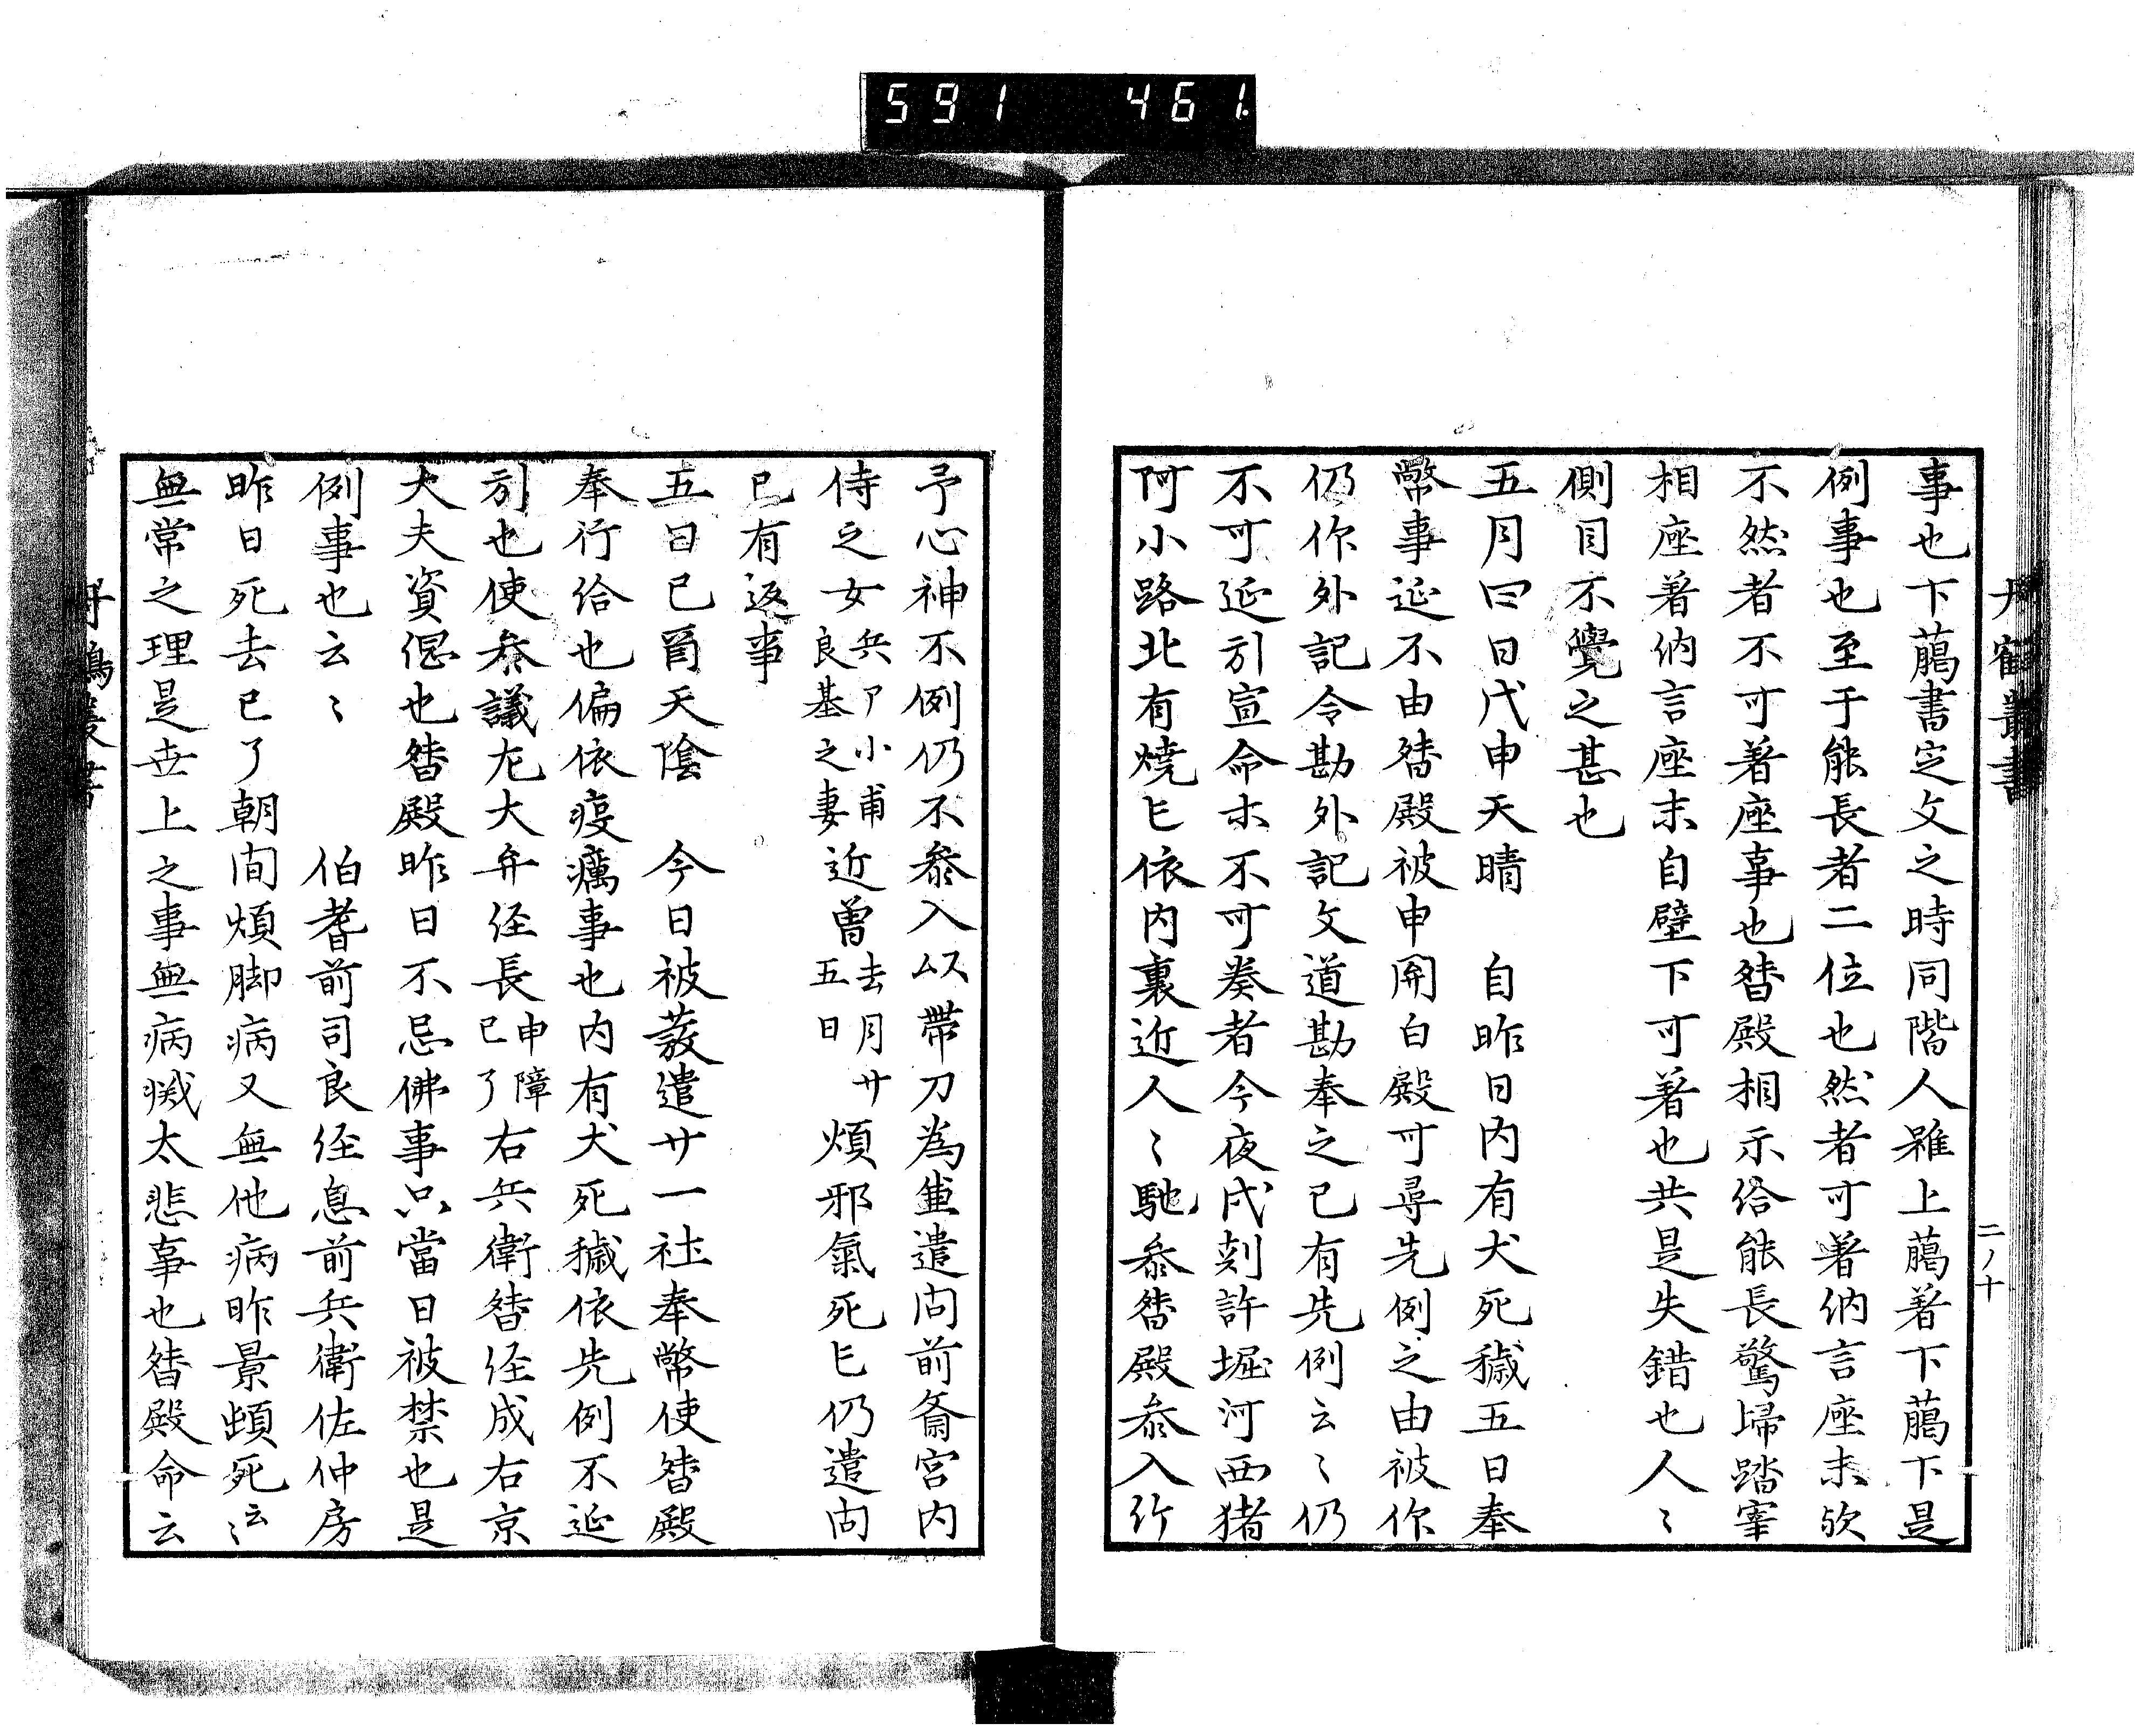 591 461.
事也下﨟書定文之時同階人雖上﨟著下﨟下是
例事也至于能長者二位也然者可著納言座末欤
不然者不可著座事也㬱殿相示給能長驚歸踏宰
相座著納言座末自壁下可著也共是失錯也人〻
側目不覺之甚也
五月四日戊申天晴 自昨日内有犬死穢五日奉
幣事延不由㬱殿被申関白殿可尋先例之由被作
仍作外記令勘外記文道勘奉之已有先例云〻仍
不可延引宣命木不可奏者今夜戌刻許堀河西猪
阿小路北有燒亡依内裏近人〻馳参㬱殿参入行
二ノ十
予心神不例仍不参入以帶刀為重遣问前齋宮内
侍之女兵ア小甫良基之妻近曽去月廿五日煩邪氣死亡仍遣问
已有返事
五日己酉天陰 今日被發遣廿一社奉幣使㬱殿
奉行给也偏依疫癘事也内有犬死穢依先例不延
引也使参議左大弁经長申障已了右兵衛㬱经成右京
大夫資仭也㬱殿昨日不忌佛事只當日被禁也是
例事也云〻 伯耆前司良经息前兵衛佐仲房
昨日死去已了朝间煩脚病又無他病昨景頓死云〻
無常之理是世上之事無病滅太悲事也㬱殿命云